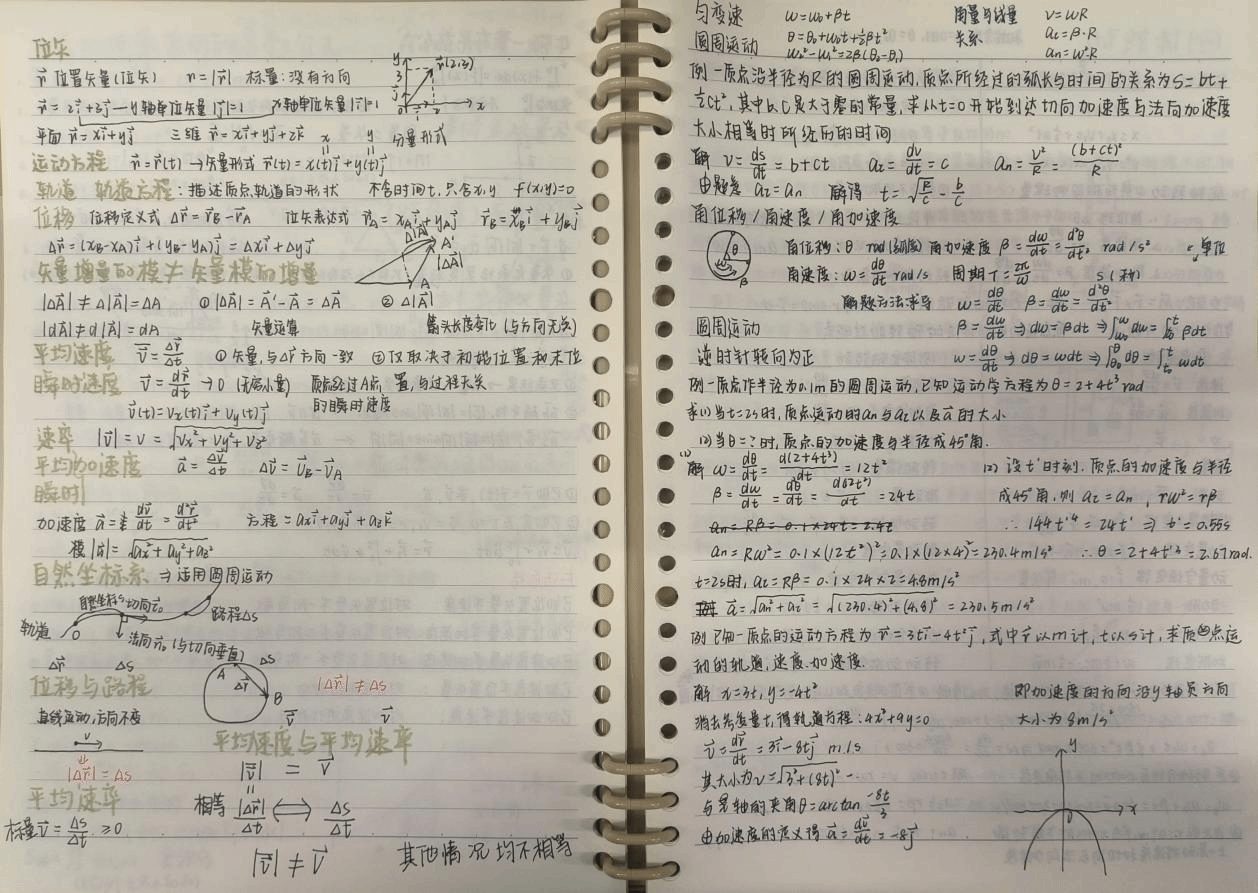 位矢
r⃗ 位置矢量(位矢) r=|r⃗| 标量:没有方向
r⃗=2i⃗+3j⃗→y轴单位矢量|j⃗|=1 x轴单位矢量|i⃗|=1
y 3 2 1 r⃗(2,3) j⃗ 0 i⃗ 1 2 x
平面 r⃗=xi⃗+yj⃗ 三维 r⃗=xi⃗+yj⃗+zk⃗ x y 分量形式
运动方程 r⃗=r⃗(t)→矢量形式 r⃗(t)=x(t)i⃗+y(t)j⃗
轨道 轨道方程:描述质点轨道的形状 不含时间t,只含x,y f(x,y)=0
位移 位移定义式 Δr⃗=r⃗B-r⃗A 位矢表达式 r⃗A=xAi⃗+yAj⃗ r⃗B=xBi⃗+yBj⃗
Δr⃗=(xB-xA)i⃗+(yB-yA)j⃗=Δxi⃗+Δyj⃗
Δ|A⃗| A' |ΔA⃗| A
矢量增量的模≠矢量模的增量
|ΔA⃗|≠Δ|A⃗|=ΔA ①|ΔA⃗|=A⃗'-A⃗=ΔA⃗ ②Δ|A⃗|
|dA⃗|≠d|A⃗|=dA 矢量运算 箭头长度变化(与方向无关)
平均速度 v⃗=Δr⃗/Δt ①矢量,与Δr⃗方向一致 ②仅取决于初始位置和末位
置,与过程无关
瞬时速度 v⃗=dr⃗/dt→0(无穷小量) 质点经过A点
的瞬时速度
v⃗(t)=Vx(t)i⃗+Vy(t)j⃗
速率 |v⃗|=v=√(Vx²+Vy²+Vz²)
平均加速度 a⃗=Δv⃗/Δt Δv⃗=v⃗B-v⃗A
瞬时
加速度 a⃗=dv⃗/dt=d²r⃗/dt² 方程=axi⃗+ayj⃗+azk⃗
模|a⃗|=√(ax²+ay²+az²)
自然坐标系⇒适用圆周运动
自然坐标S 切向τ⃗0 路程Δs
轨道 O 法向n⃗0(与切向垂直)
Δr⃗ Δs A Δr⃗ Δs B
位移与路程 |Δr⃗|≠Δs
直线运动,方向不变 v⃗ v⃗
v 平均速度与平均速率
|Δr⃗|=Δs |v⃗| = v⃗
平均速率 相等 |Δr⃗|/Δt ⟺ Δs/Δt
标量v⃗=Δs/Δt≥0
|v⃗|≠v⃗ 其他情况均不相等
匀变速 ω=ω0+βt 角量与线量 v=ωR
圆周运动 θ=θ0+ω0t+½βt² 关系 aτ=β·R
ω0²-ω1²=2β(θ0-θ1) an=ω²R
例一质点沿半径为R的圆周运动,质点所经过的弧长与时间的关系为S=bt+
½Ct²,其中b,C是大于零的常量,求从t=0开始到达切向加速度与法向加速度
大小相等时所经历的时间
解 v=ds/dt=b+ct aτ=dv/dt=c an=v²/R=(b+ct)²/R
由题意 aτ=an 解得 t=√(R/c)-b/c
角位移/角速度/角加速度
θ β
角位移:θ rad(弧度) 角加速度 β=dω/dt=d²θ/dt², rad/s² 单位
角速度:ω=dθ/dt rad/s 周期T=2π/ω s(秒)
解题方法求导 ω=dθ/dt β=dω/dt=d²θ/dt²
圆周运动 β=dω/dt⇒dω=βdt⇒∫ω0^ω dω=∫t0^t βdt
逆时针转向为正 ω=dθ/dt⇒dθ=ωdt⇒∫θ0^θ dθ=∫t0^t ωdt
例一质点作半径为0.1m的圆周运动,已知运动学方程为θ=2+4t³ rad
求(1)当t=2s时,质点运动的an与aτ以及a⃗的大小
(2)当θ=?时,质点的加速度与半径成45°角.
(1)
解 ω=dθ/dt=d(2+4t³)/dt=12t² (2)设t'时刻.质点的加速度与半径
β=dω/dt=d²θ/dt=d(12t²)/dt=24t 成45°角,则aτ=an,rω²=rβ
an=Rβ=0.1×24t=2.4t ∴144t'⁴=24t'⇒t'=0.55s
an=Rω²=0.1×(12t²)²=0.1×(12×4)²=230.4m/s² ∴θ=2+4t'³=2.67rad.
t=2s时,aτ=Rβ=0.1×24×2=4.8m/s²
a⃗=√(an²+aτ²)=√((230.4)²+(4.8)²)=230.5m/s²
例 已知一质点的运动方程为r⃗=3ti⃗-4t²j⃗,式中r⃗以m计,t以s计,求质点运
动的轨道,速度.加速度.
解 x=3t,y=-4t² 即加速度的方向沿y轴负方向
消去参变量t,得轨道方程:4x²+9y=0 大小为8m/s²
v⃗=dr⃗/dt=3i⃗-8tj⃗ m/s
其大小为v=√(3²+(8t)²)
与x轴的夹角θ=arctan -8t/3
由加速度的定义得a⃗=dv⃗/dt=-8j⃗
y 0 x